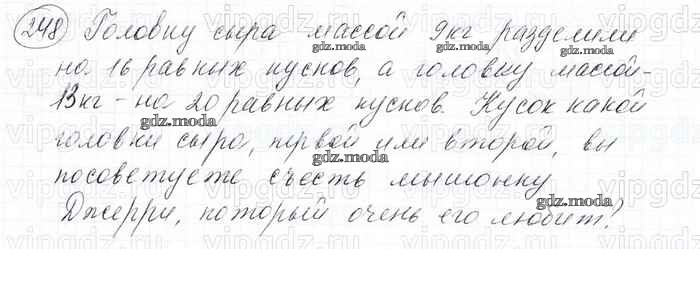 248 Головку сыра массой 9кг разделили
на 16 равных кусков, а головку массой -
13кг - на 20 равных кусков. Кусок какой
головки сыра, первой или второй, вы
посоветуете съесть мышонку
Джерри, который очень его любит?
gdz.moda
gdz.moda
gdz.moda
gdz.moda
gdz.moda
gdz.moda
gdz.moda
vipgdz.ru